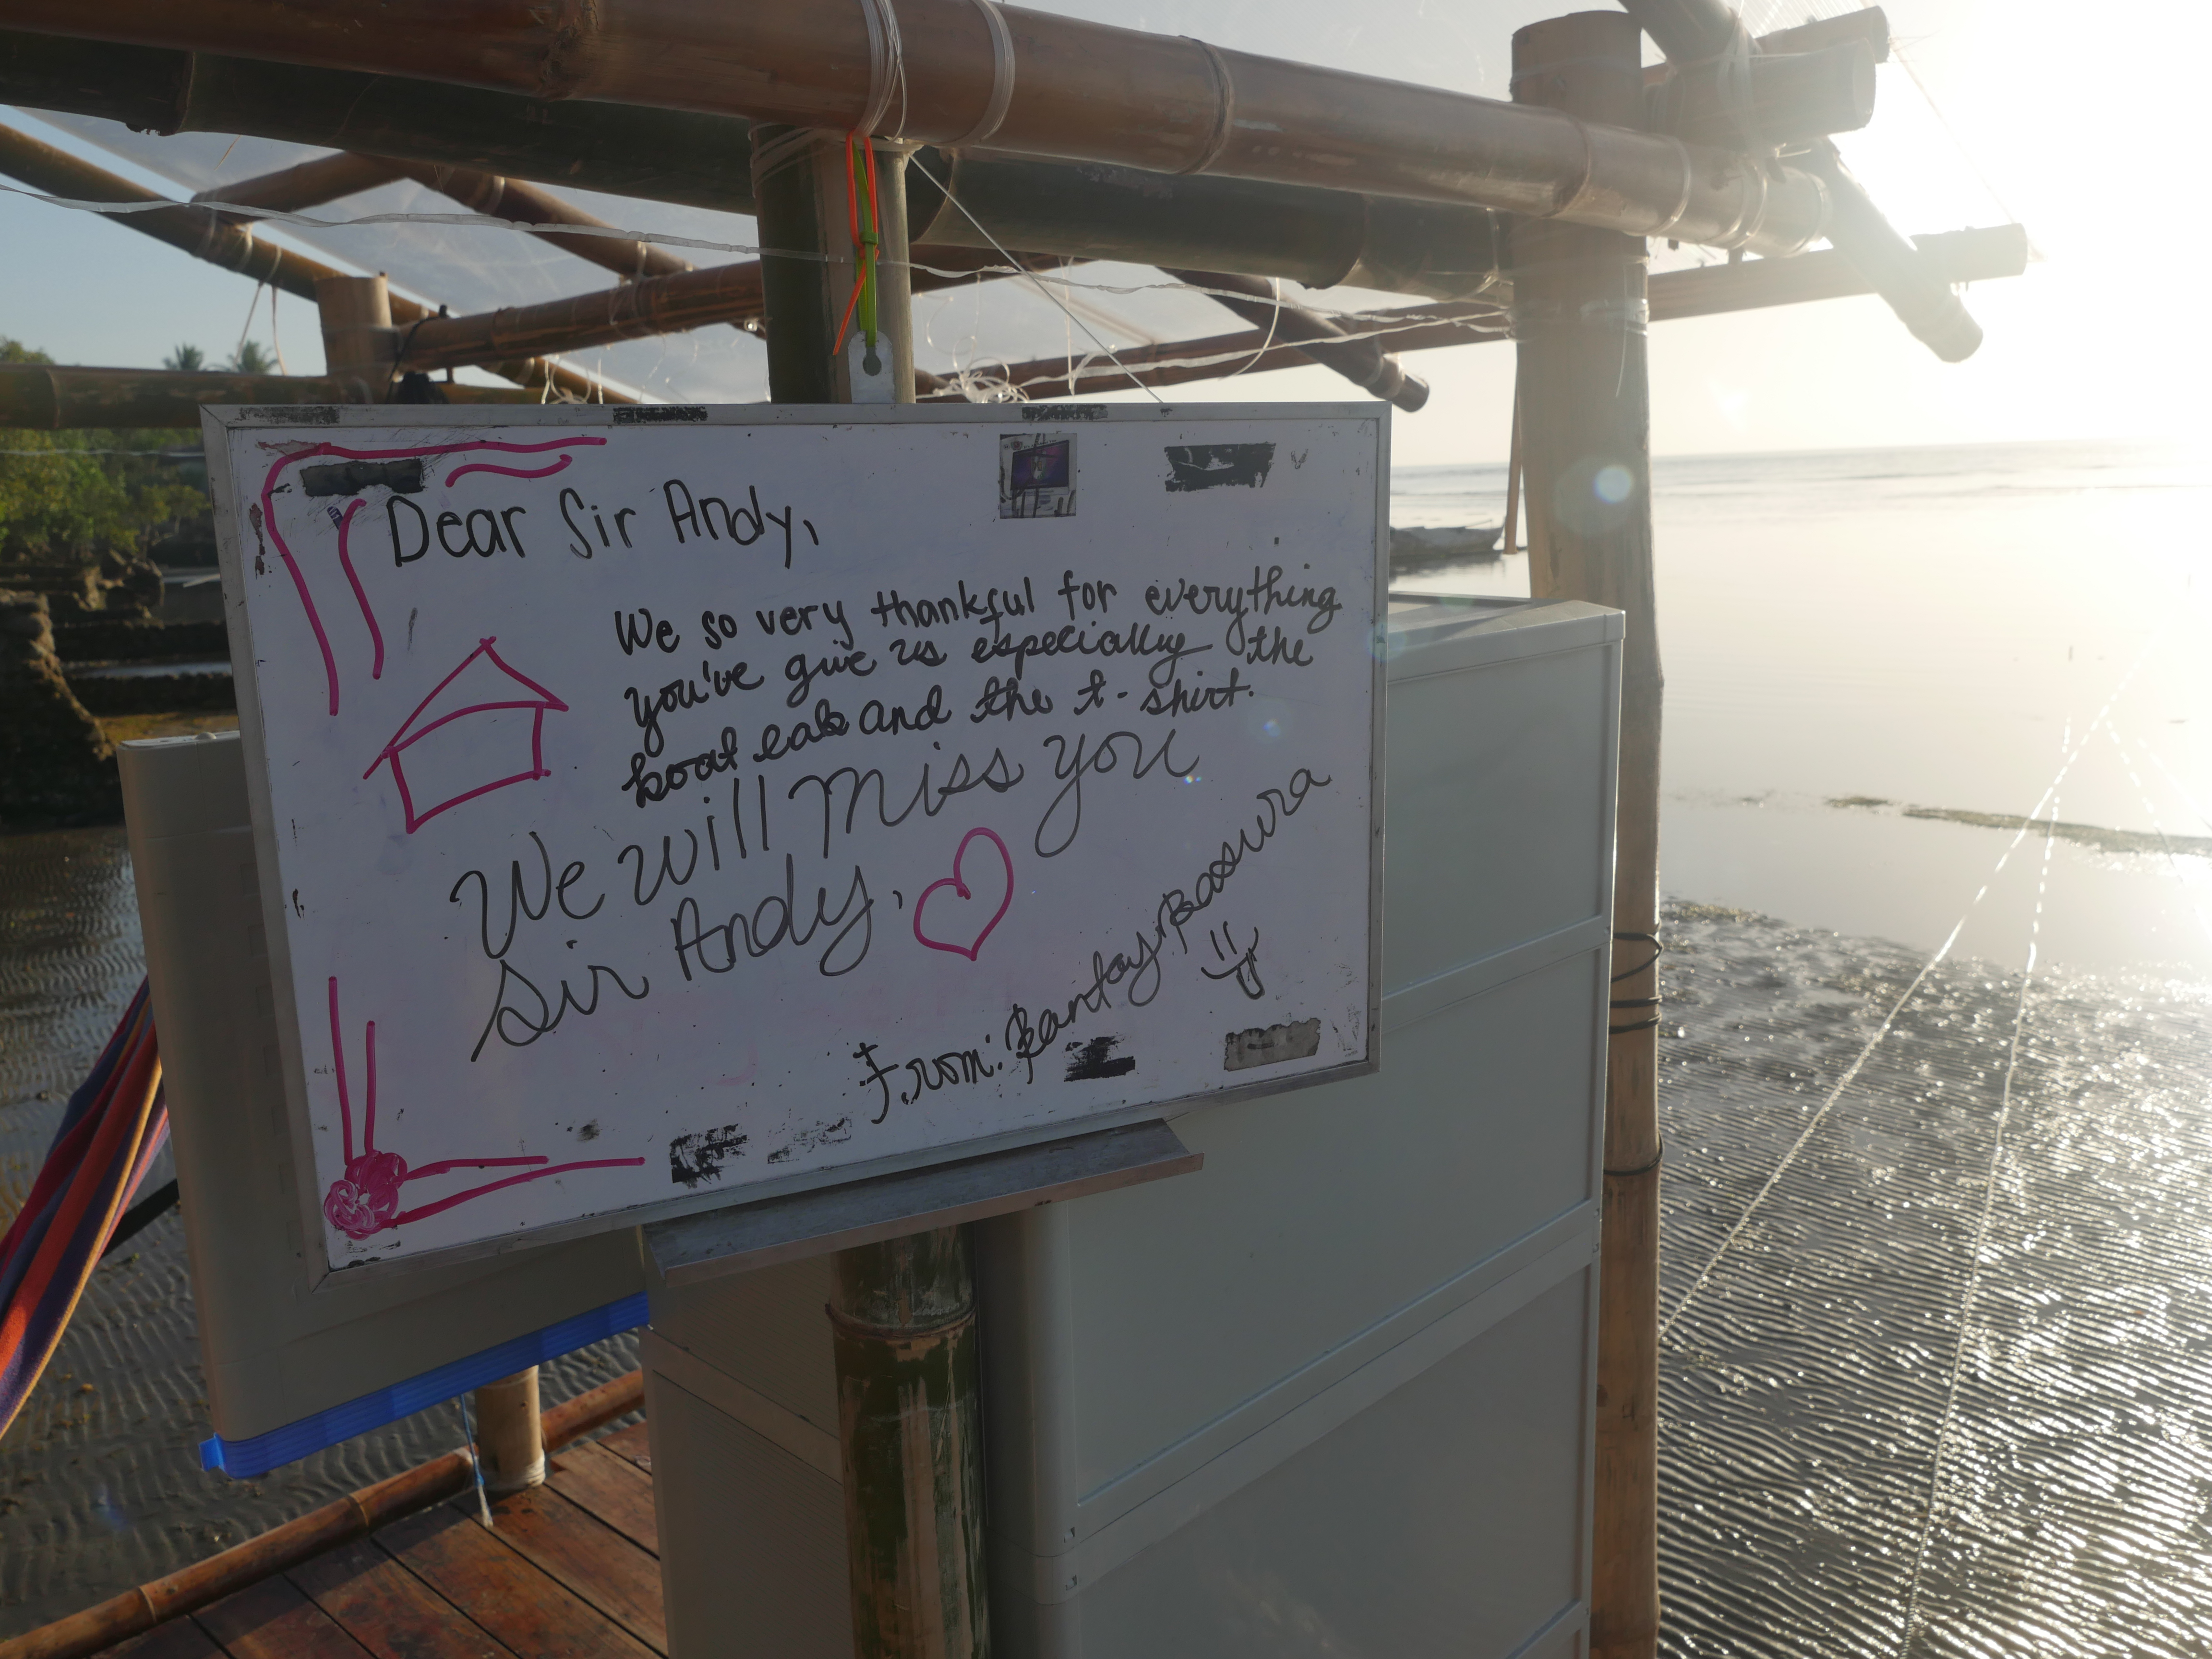 Dear Sir Andy,
We so very thankful for everything
you've give us especially the
boat lab and the t-shirt.
We will miss you
Sir Andy,
From: Bantay Basura